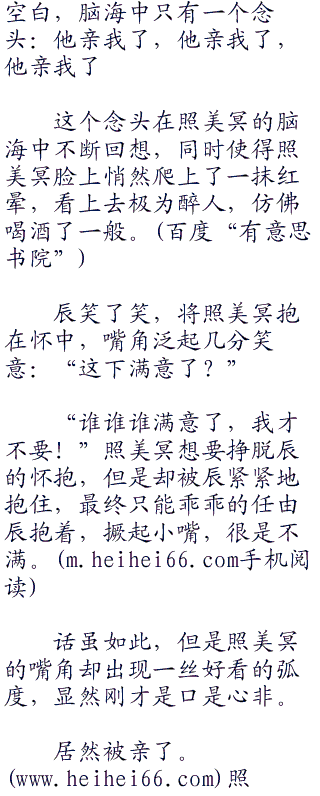 空白，脑海中只有一个念
头：他亲我了，他亲我了，
他亲我了
这个念头在照美冥的脑
海中不断回想，同时使得照
美冥脸上悄然爬上了一抹红
晕，看上去极为醉人，仿佛
喝酒了一般。(百度“有意思
书院”)
辰笑了笑，将照美冥抱
在怀中，嘴角泛起几分笑
意：“这下满意了？”
“谁谁谁满意了，我才
不要！”照美冥想要挣脱辰
的怀抱，但是却被辰紧紧地
抱住，最终只能乖乖的任由
辰抱着，撅起小嘴，很是不
满。(m.heihei66.com手机阅
读)
话虽如此，但是照美冥
的嘴角却出现一丝好看的弧
度，显然刚才是口是心非。
居然被亲了。
(www.heihei66.com)照